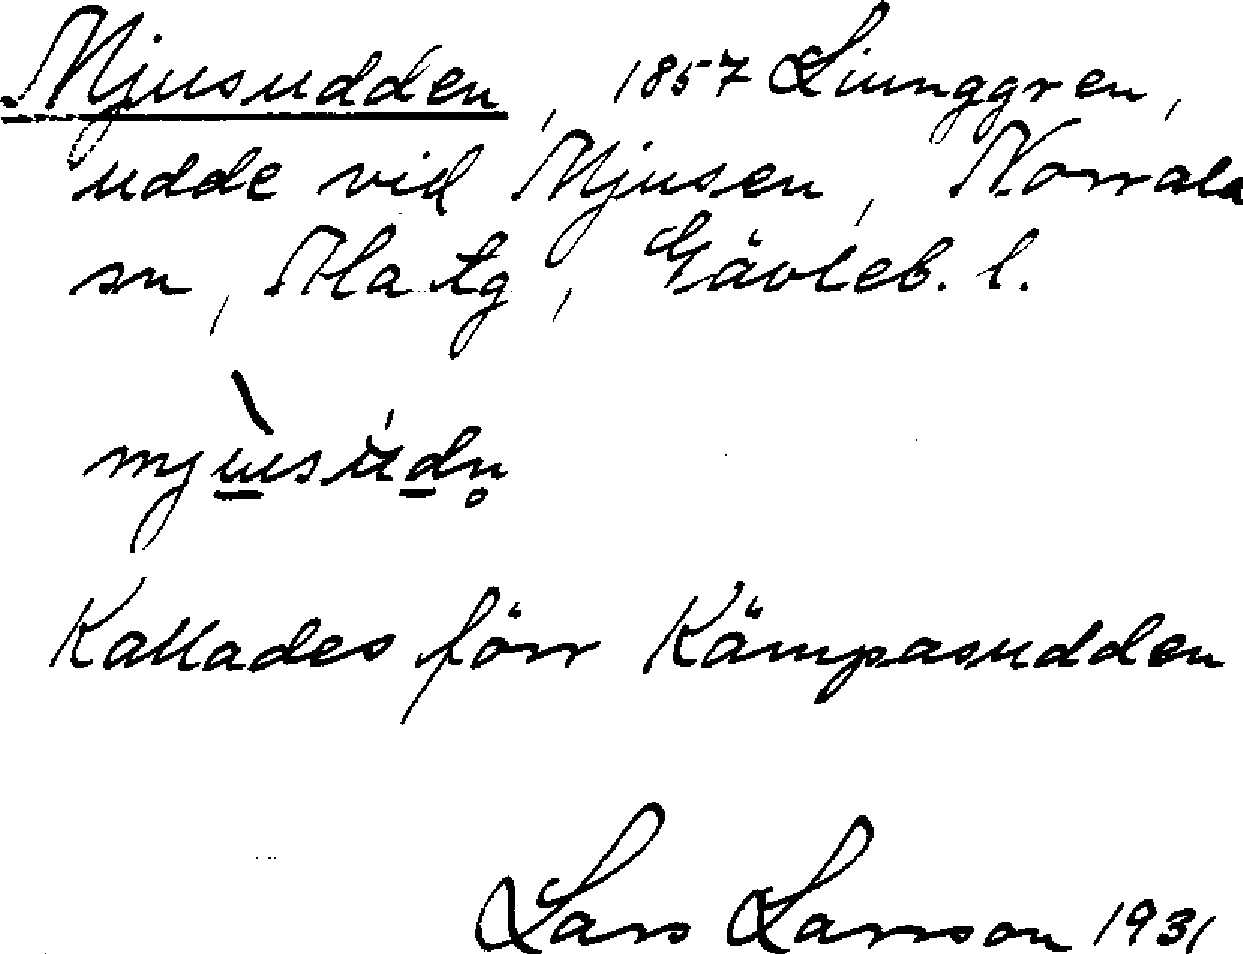 Mjusudden, 1857 Ljunggren,
udde vid Mjusen, Norrala
sn, Ala tg, Gävleb. l.
Kallades förr Kämpasudden
Lars Larsson 1931